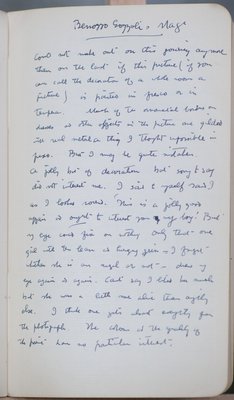 Benozzo Gozzoli's Magi
Could not make out on this journey anymore
than on the last if this picture (if you
can call the decoration of a whole room a
picture) is painted in fresco or in
tempera. Much of the ornamental borders on
dresses & other effects in the picture are gilded
with real metal a thing I thought impossible in
fresco. But I may be quite mistaken
A jolly bit of decoration but sorry to say
did not interest me. I said to myself said I
as I looked round. This is a jolly good
affair & ought to interest you my boy! But
my eye could fix on nothing only that one
girl with the
she is an angel or not — drew my
eye again & again. Can't say I liked her much
but she was a little more alive than anything
else. I think one gets almost everything from
the photograph. The colour & the quality of
the paint have no particular interest.